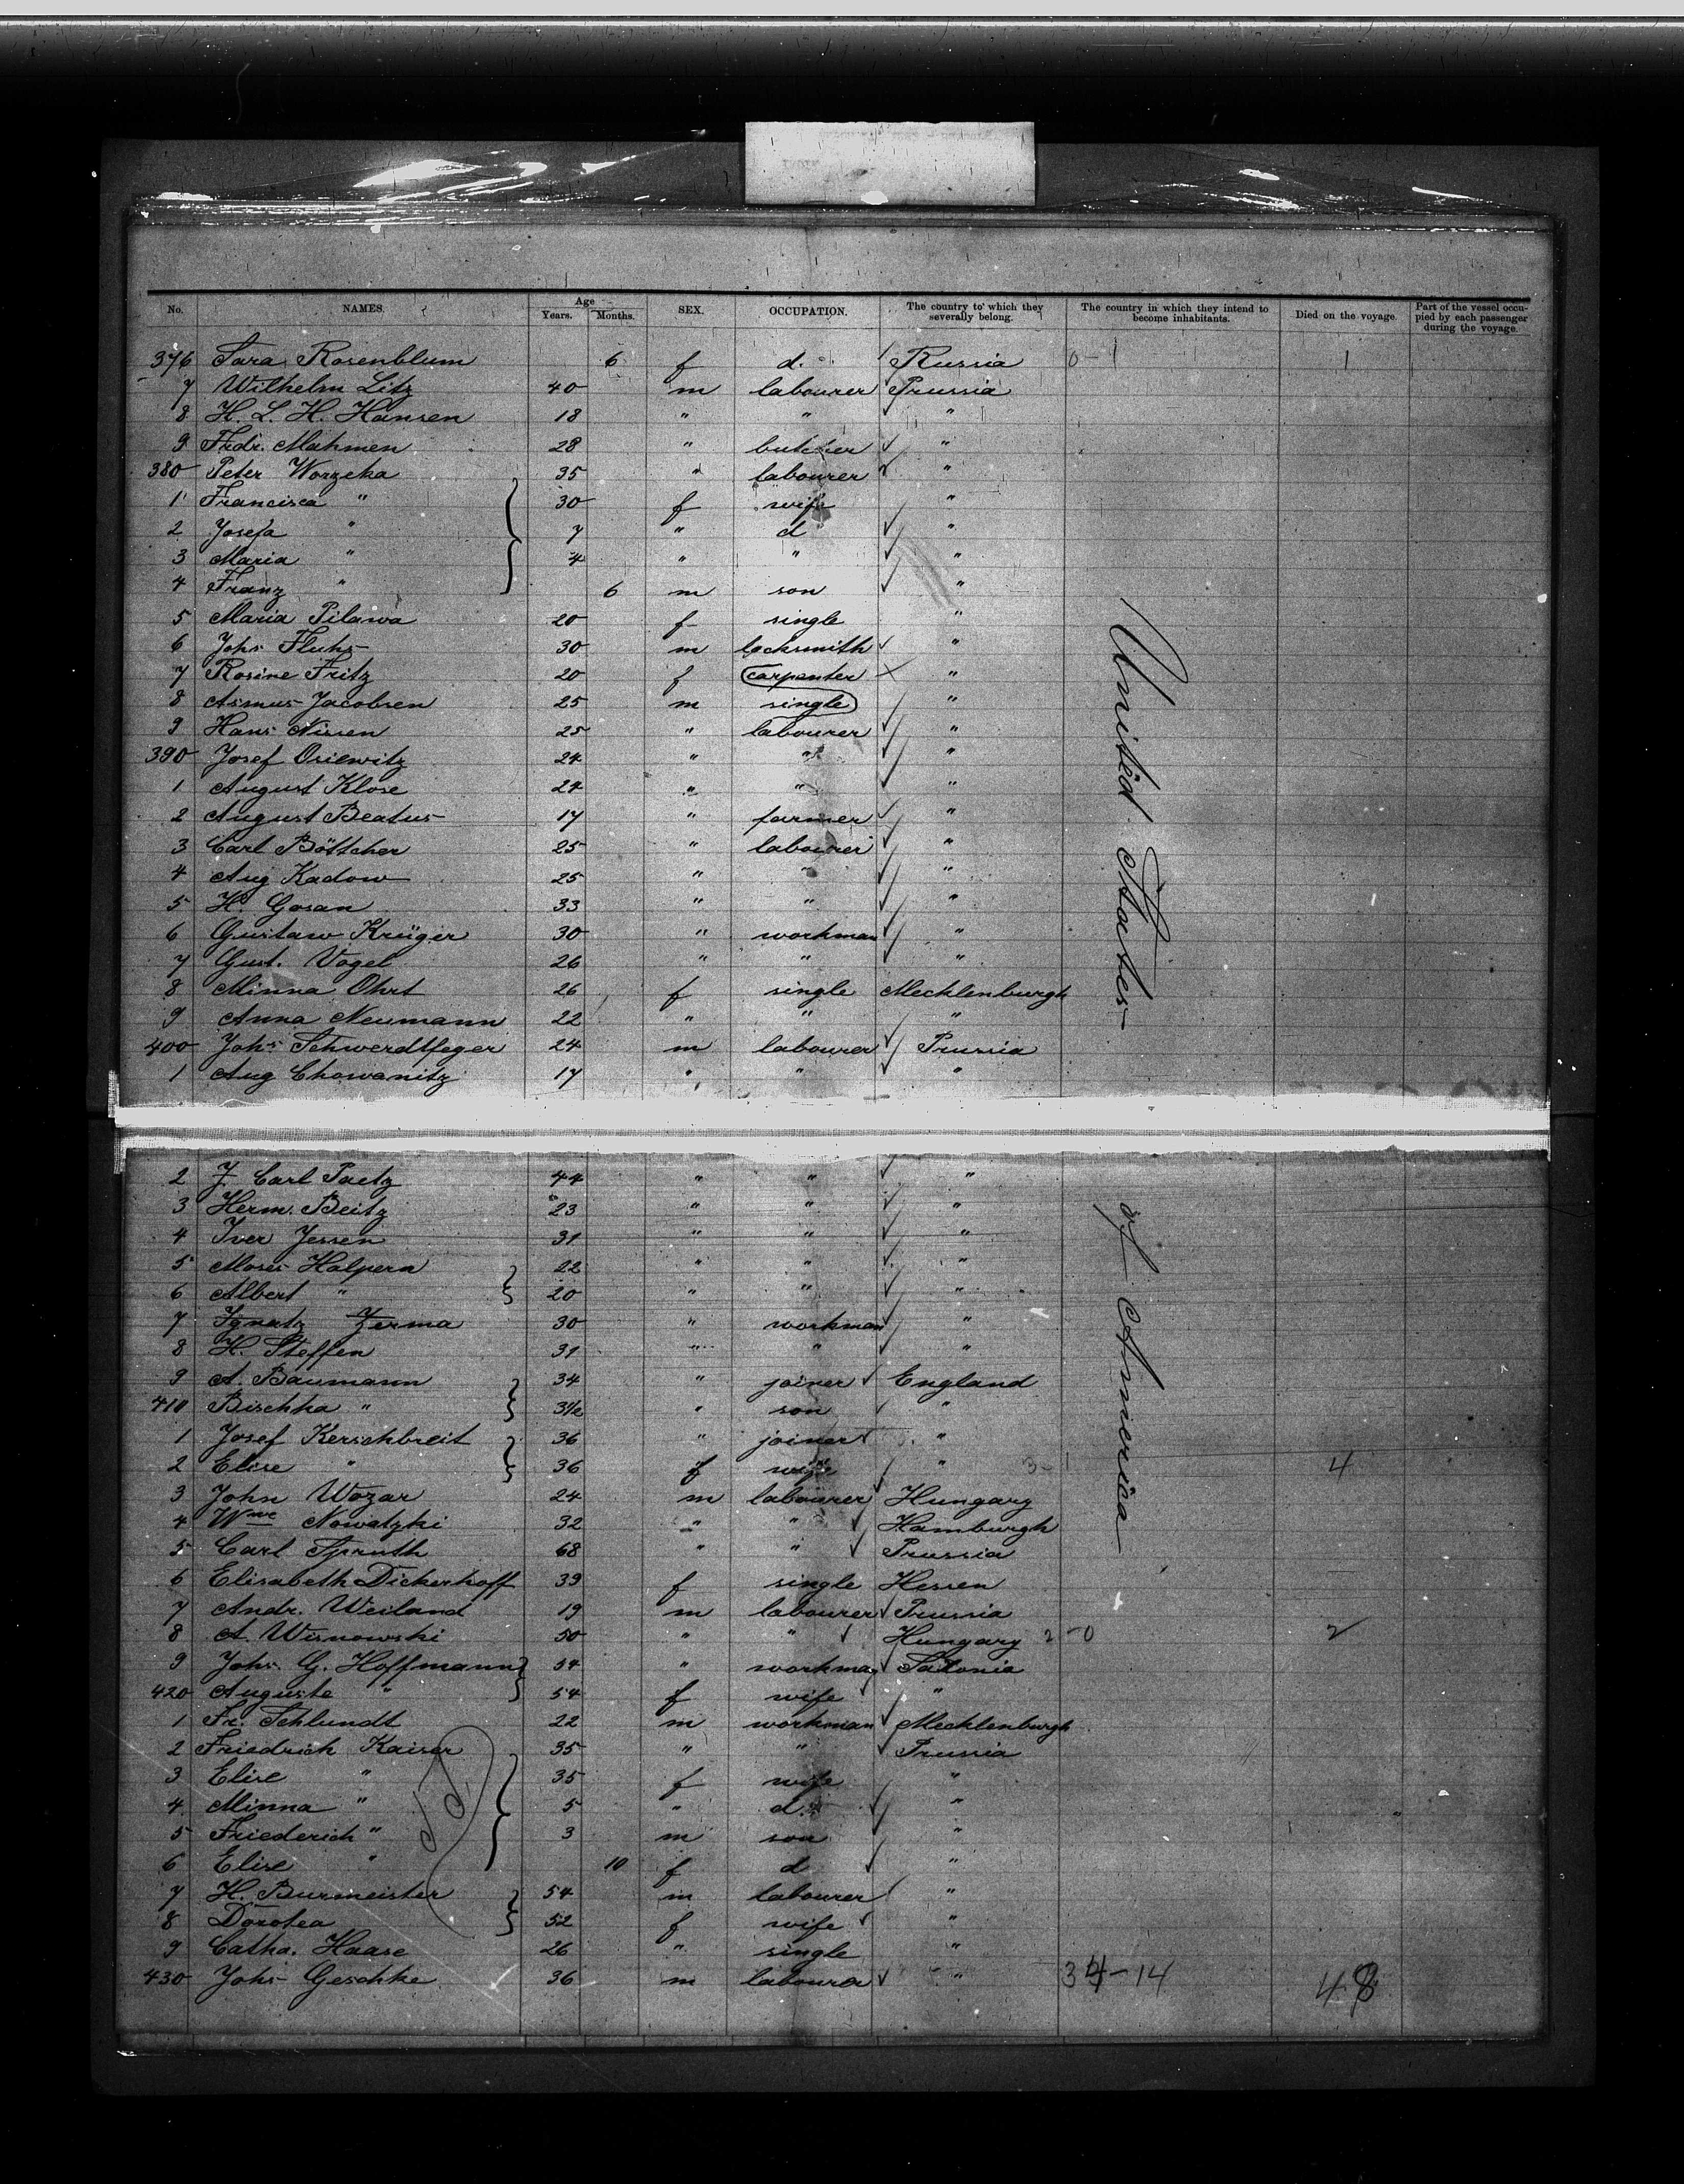 No. NAMES. Age Years. Months. SEX. OCCUPATION. The country to which they severally belong. The country in which they intend to become inhabitants. Died on the voyage. Part of the vessel occupied by each passenger during the voyage.
376 Sara Rosenblum 6 f d. Russia 0-1 1
7 Wilhelm Litz 40 m labourer Prussia
8 H. L. H. Hansen 18 " " "
9 Frdr. Mahmen 28 " butcher "
380 Peter Worzeka 35 " labourer "
1 Francisca " 30 f wife "
2 Josefa " 7 " d "
3 Maria " 4 " " "
4 Franz " 6 m son "
5 Maria Pilawa 20 f single "
6 Johs Fluhs 30 m locksmith "
7 Rosine Fritz 20 f carpenter "
8 Asmus Jacobsen 25 m single "
9 Hans Nissen 25 " labourer "
390 Josef Osiewitz 24 " " "
1 August Klose 24 " " "
2 August Beatus 17 " farmer "
3 Carl Böttcher 25 " labourer "
4 Aug Kadow 25 " " "
5 H. Gosan 33 " " "
6 Gustaw Krüger 30 " workman "
7 Gust. Vogel 26 " " "
8 Minna Ohrt 26 f single Mecklenburgh
9 Anna Neumann 22 " " "
400 Johs Schwerdtfeger 24 m labourer Prussia
1 Aug Chowanitz 17 " " "
2 J. Carl Paetz 44 " " "
3 Herm. Beitz 23 " " "
4 Iver Jessen 31 " " "
5 Moses Halpern 22 " " "
6 Albert " 20 " " "
7 Ignatz Zerma 30 " workman "
8 H. Steffen 31 " " "
9 A. Baumann 34 " joiner England
410 Bischka " 3½ " son "
1 Josef Kerschbreit 36 " joiner "
2 Elise " 36 f wife " 3-1 4
3 John Wozar 24 m labourer Hungary
4 Wme Nowatzki 32 " " Hamburgh
5 Carl Spruth 68 " " Prussia
6 Elisabeth Dickerhoff 39 f single Hessen
7 Andr. Weiland 19 m labourer Prussia
8 A. Wisnowski 50 " " Hungary 2-0 2
9 Johs. G. Hoffmann 54 " workman Saxonia
420 Auguste " 54 f wife "
1 Fr. Schlundt 22 m workman Mecklenburgh
2 Friedrich Kaiser 35 " " Prussia
3 Elise " 35 f wife "
4 Minna " 5 " d. "
5 Friederich " 3 m son "
6 Elise " 10 f d "
7 H. Burmeister 54 m labourer "
8 Dorotea 52 f wife "
9 Catha. Haase 26 " single "
430 Johs Geschke 36 m labourer " 34-14 48
United States
of America